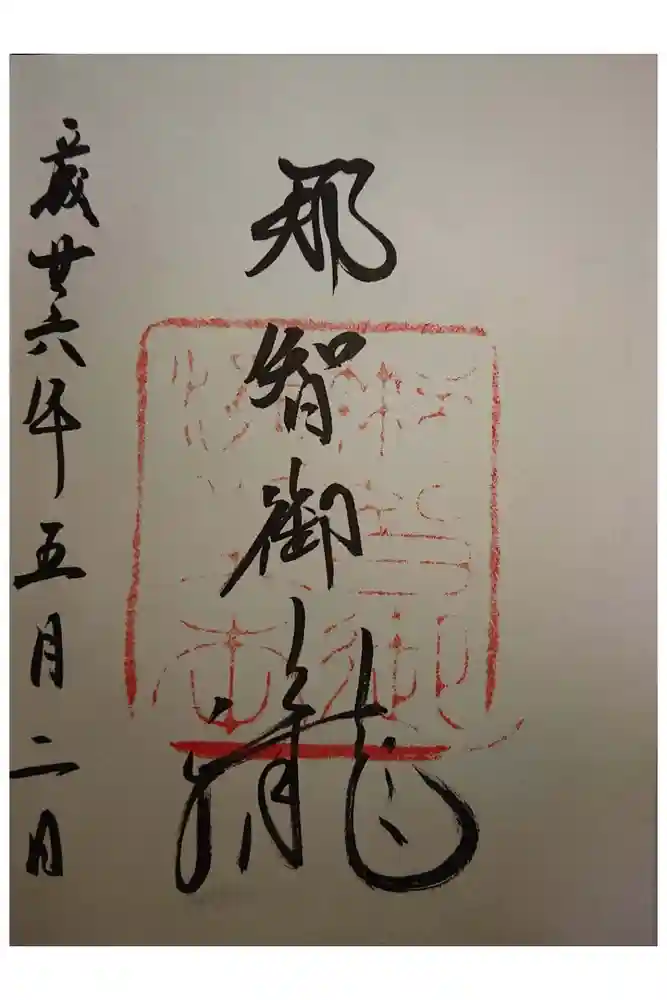 那智御瀧
歳廿六年五月二日